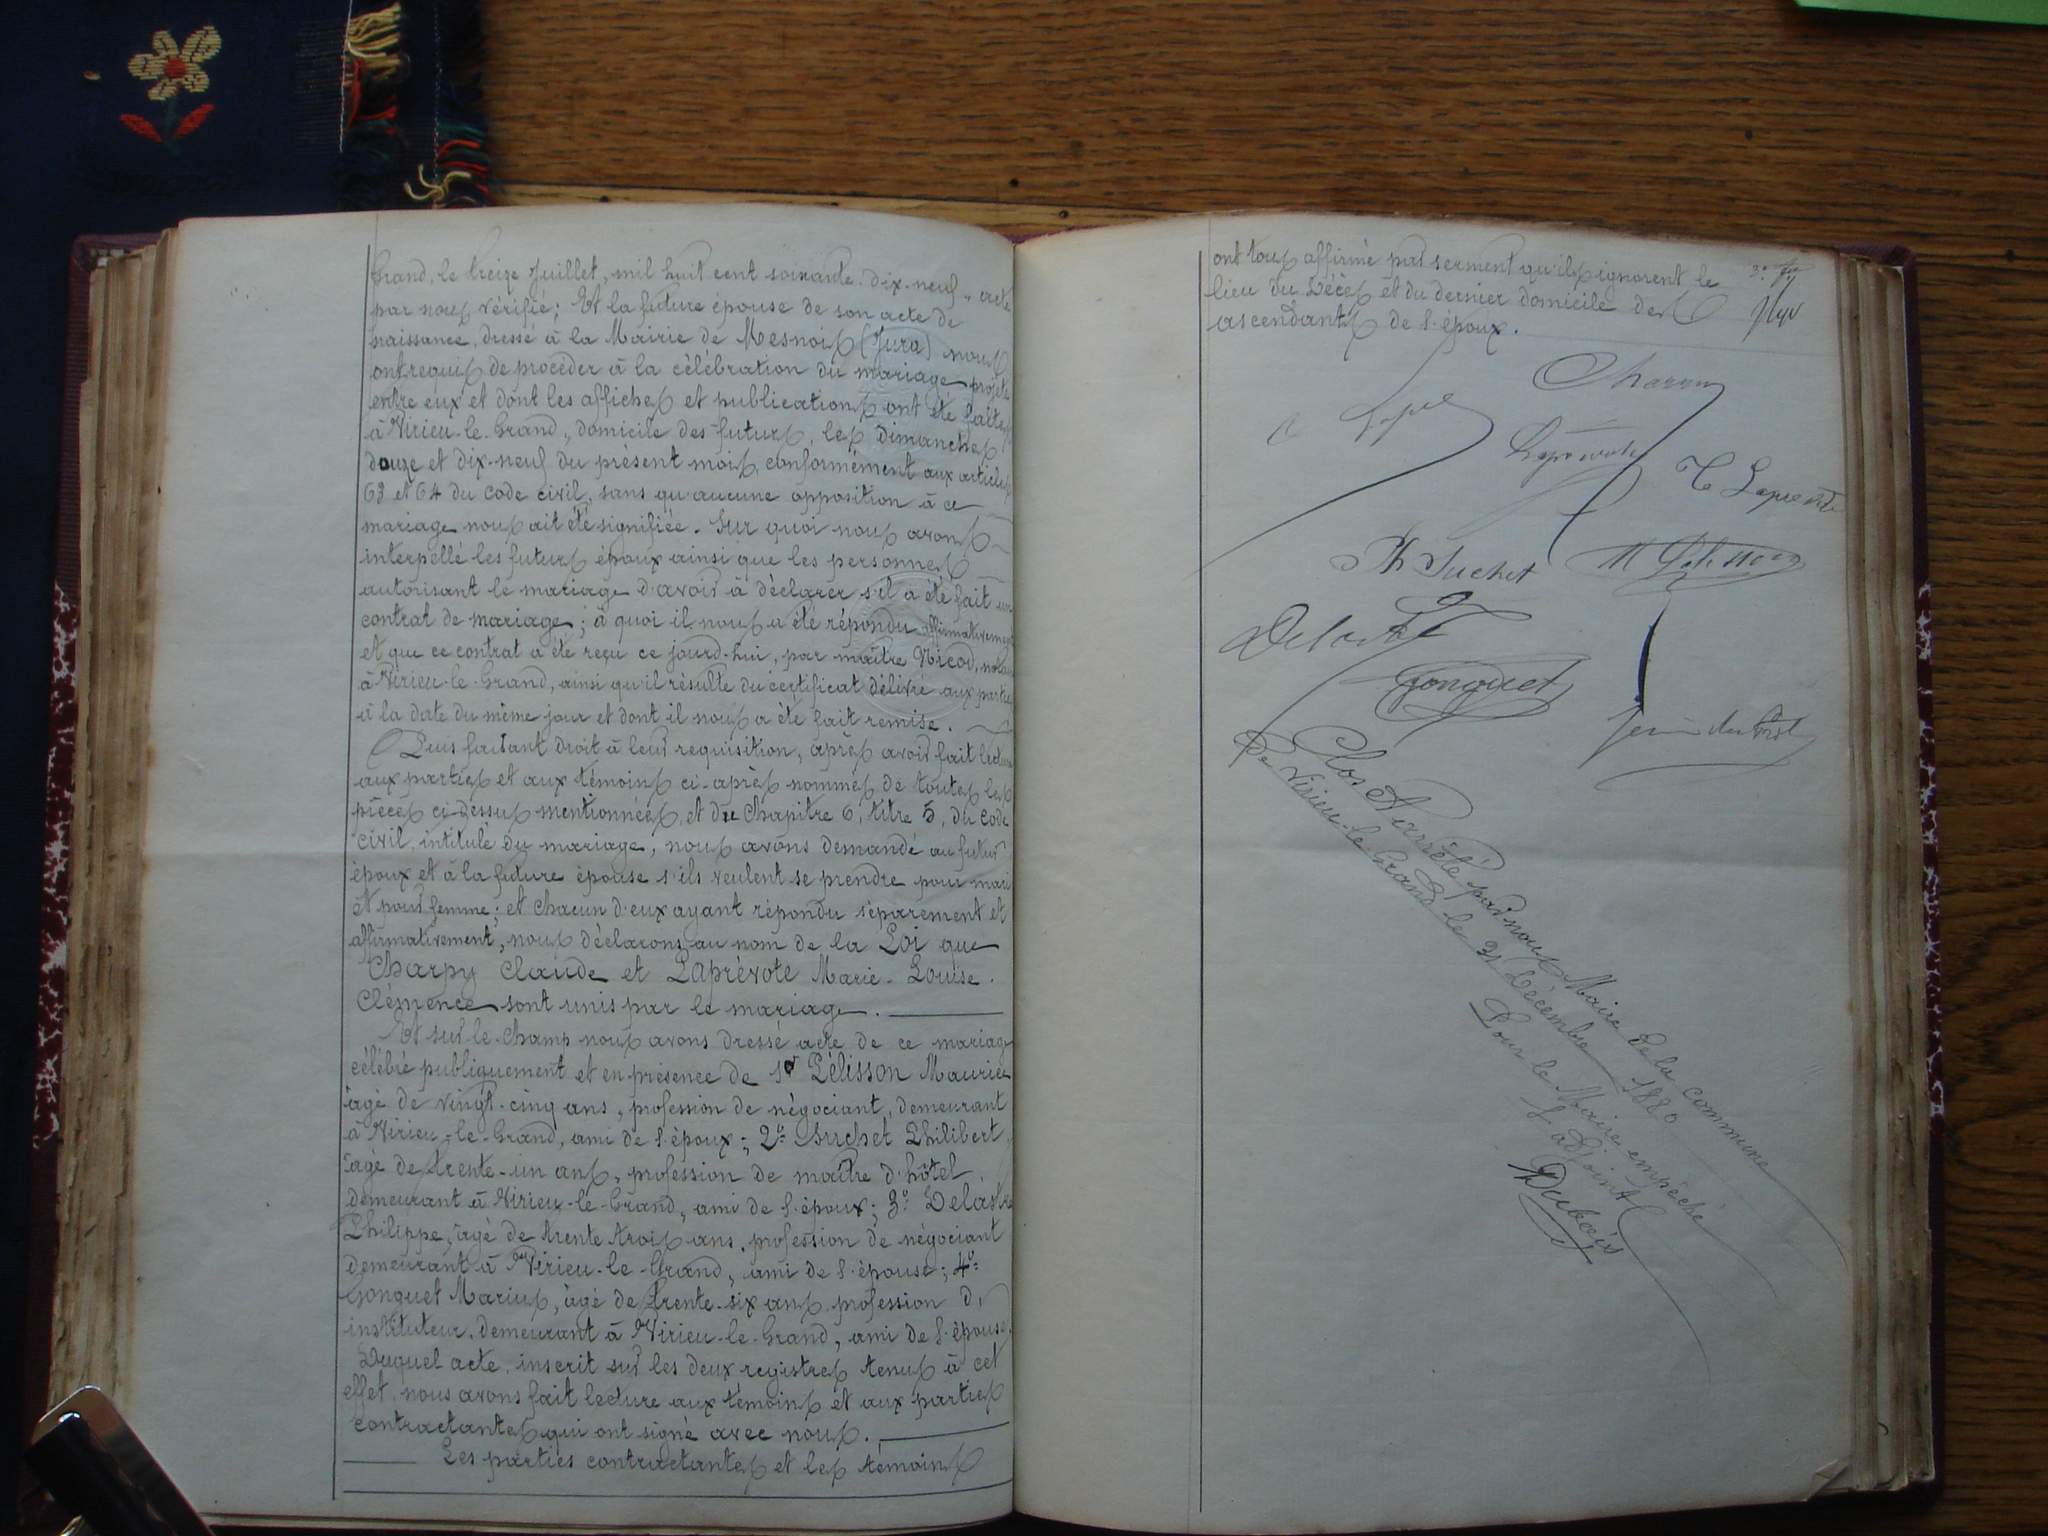 Grand, le treize Juillet, mil huit cent soixante-dix-neuf, acte
par nous vérifié; Et la future épouse de son acte de
naissance, dressé à la Mairie de Mesnois (Jura) nous
ont requis de procéder à la célébration du mariage projeté
entre eux et dont les affiches et publications ont été faites
à Virieu-le-Grand, domicile des futurs, les Dimanches
douze et dix-neuf du présent mois, conformément aux articles
63 et 64 du code civil, sans qu'aucune opposition à ce
mariage nous ait été signifiée. Sur quoi nous avons
interpellé les futurs époux ainsi que les personnes
autorisant le mariage d'avoir à déclarer s'il a été fait un
contrat de mariage; à quoi il nous a été répondu affirmativement
et que ce contrat a été reçu ce jourd-hui, par maître Nicod, notaire
à Virieu-le-Grand, ainsi qu'il résulte du certificat délivré aux parties
à la date du même jour et dont il nous a été fait remise.
Puis faisant droit à leur requisition, après avoir fait lecture
aux parties et aux témoins ci-après nommés de toutes les
pièces ci-dessus mentionnées, et du Chapitre 6, titre 5, du code
civil, intitulé du mariage, nous avons demandé au futur
époux et à la future épouse s'ils veulent se prendre pour mari
et pour femme; et chacun d'eux ayant répondu séparement et
affirmativement, nous déclarons au nom de la Loi que
Charpy Claude et Laprévote Marie-Louise-
Clémence sont unis par le mariage.
Et sur-le-champ nous avons dressé acte de ce mariage
célébré publiquement et en présence de 1° Pélisson Maurice
âgé de vingt-cinq ans, profession de négociant, demeurant
à Virieu-le-Grand, ami de l'époux; 2° Suchet Philibert,
âgé de trente-un ans, profession de maître d'hôtel
demeurant à Virieu-le-Grand, ami de l'époux; 3° Delastre
Philippe, âgé de trente trois ans, profession de négociant
demeurant à Virieu-le-Grand, ami de l'épouse; 4°
Gonguet Marius, âgé de trente-six ans profession d'
instituteur, demeurant à Virieu-le-Grand, ami de l'épouse,
Duquel acte, inscrit sur les deux registres tenus à cet
effet, nous avons fait lecture aux témoins et aux parties
contractantes qui ont signé avec nous.
Les parties contractantes et les témoins
ont tous affirmé par serment qu'ils ignorent le
lieu du décès et du dernier domicile des
ascendants de l'époux.
Laprévote
C Laprévote
Ph Suchet
M Pélisson
Delastre
Gonguet
Clos et arrêté par nous Maire de la commune
de Virieu-le-Grand le 31 Décembre 1880
Pour le Maire empêché
L'adjoint
Dubois